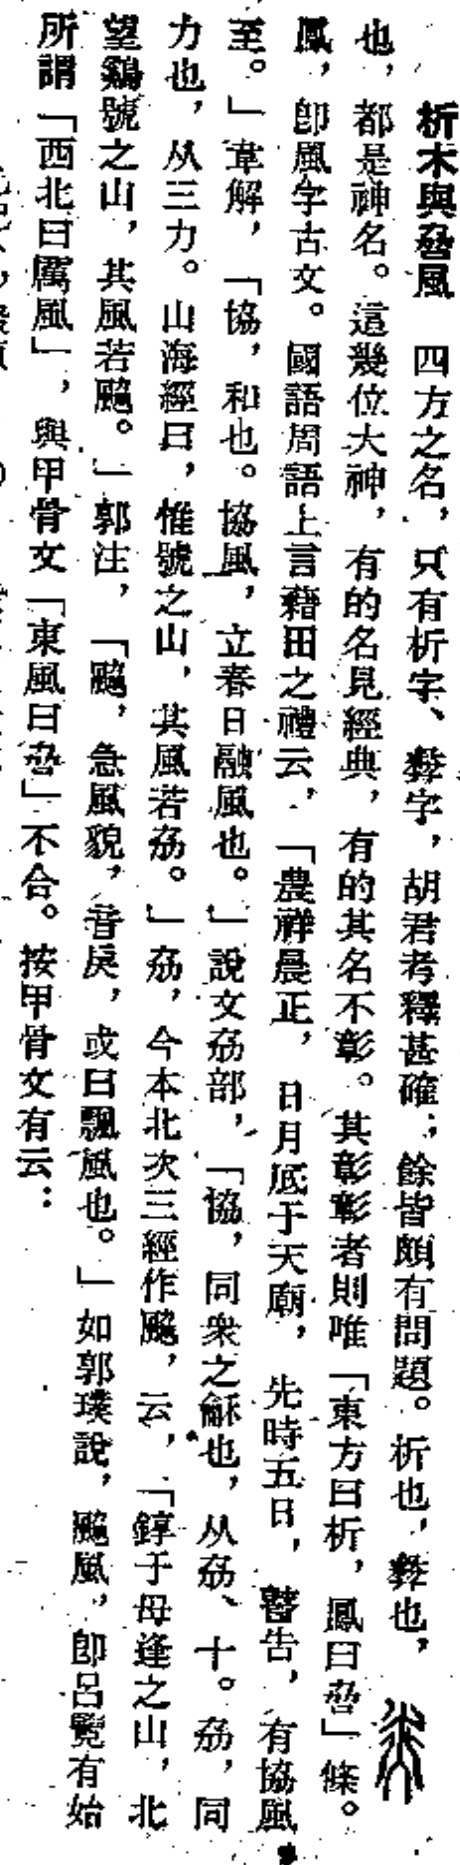 析木與劦風　四方之名，只有析字、彝字，胡君考釋甚確；餘皆頗有問題。析也，彝也，
也，都是神名。這幾位大神，有的名見經典，有的其名不彰。其彰彰者則唯「東方曰析，鳳曰劦」條。
鳳，卽風字古文。國語周語上言藉田之禮云，「農祥晨正，日月底于天廟，先時五日，瞽告，有協風
至。」韋解，「協，和也。協風，立春日融風也。」說文劦部，「協，同衆之龢也，从劦、十。劦，同
力也，从三力。山海經曰，惟號之山，其風若劦。」劦，今本北次三經作飈，云，「錞于母逢之山，北
望鷄號之山，其風若飈。」郭注，「飈，急風貌，音戾，或曰飄風也。」如郭璞說，飈風，卽呂覽有始
所謂「西北曰厲風」，與甲骨文「東風曰劦」不合。按甲骨文有云：